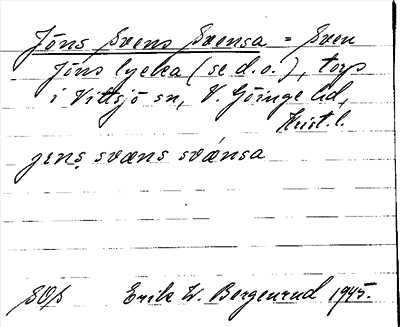 Jöns Svens Svensa = Sven
Jöns lycka (se d.o.), torp
i Vittsjö sn, V. Göinge hd,
Krist. l.
jens svæns svænsa
Erik W. Bergenrud 1945.